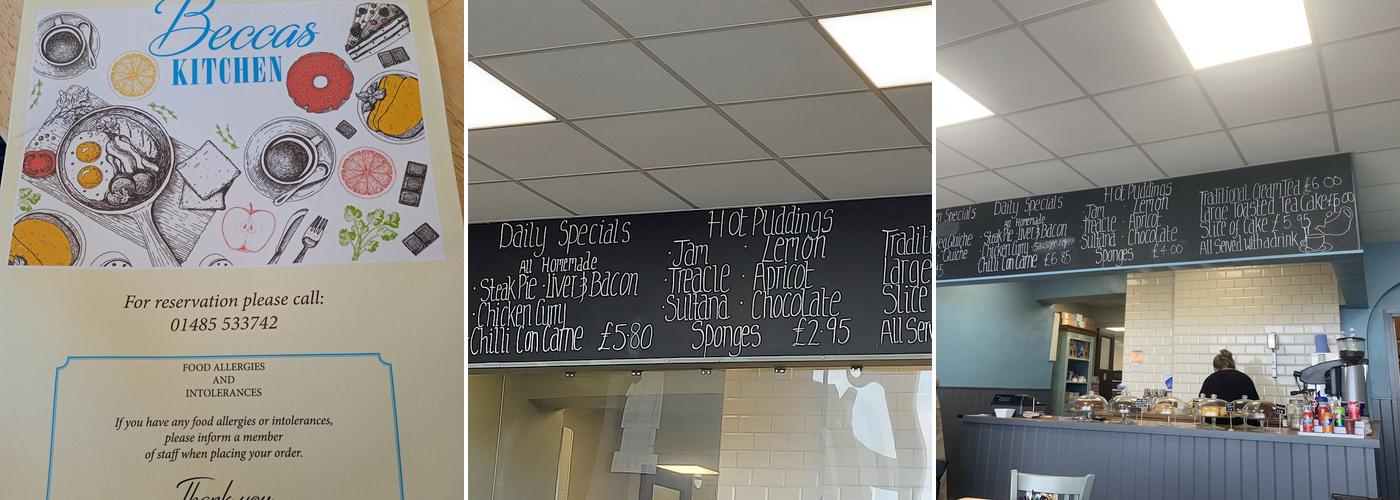 Beccas
KITCHEN
For reservation please call:
01485 533742
FOOD ALLERGIES
AND
INTOLERANCES
If you have any food allergies or intolerances,
please inform a member
of staff when placing your order.
Thank you
Daily Specials
All Homemade
· Steak Pie · liver & Bacon
· Chicken Curry
Chilli Con Carne £5·80
Hot Puddings
· Jam · Lemon
· Treacle · Apricot
· Sultana · Chocolate
Sponges £2·95
Traditi
large
Slice
All Serv
Specials
Quiche
Quiche
Daily Specials
All Homemade
Steak Pie · liver & Bacon
Chicken Curry
Chilli Con Carne £6 85
Hot Puddings
Jam Lemon
Treacle · Apricot
Sultana · Chocolate
Sponges £4.00
Traditional Cream Tea £6 00
large Toasted Tea Cake £5 00
Slice of Cake £5 95
All Served with a drink